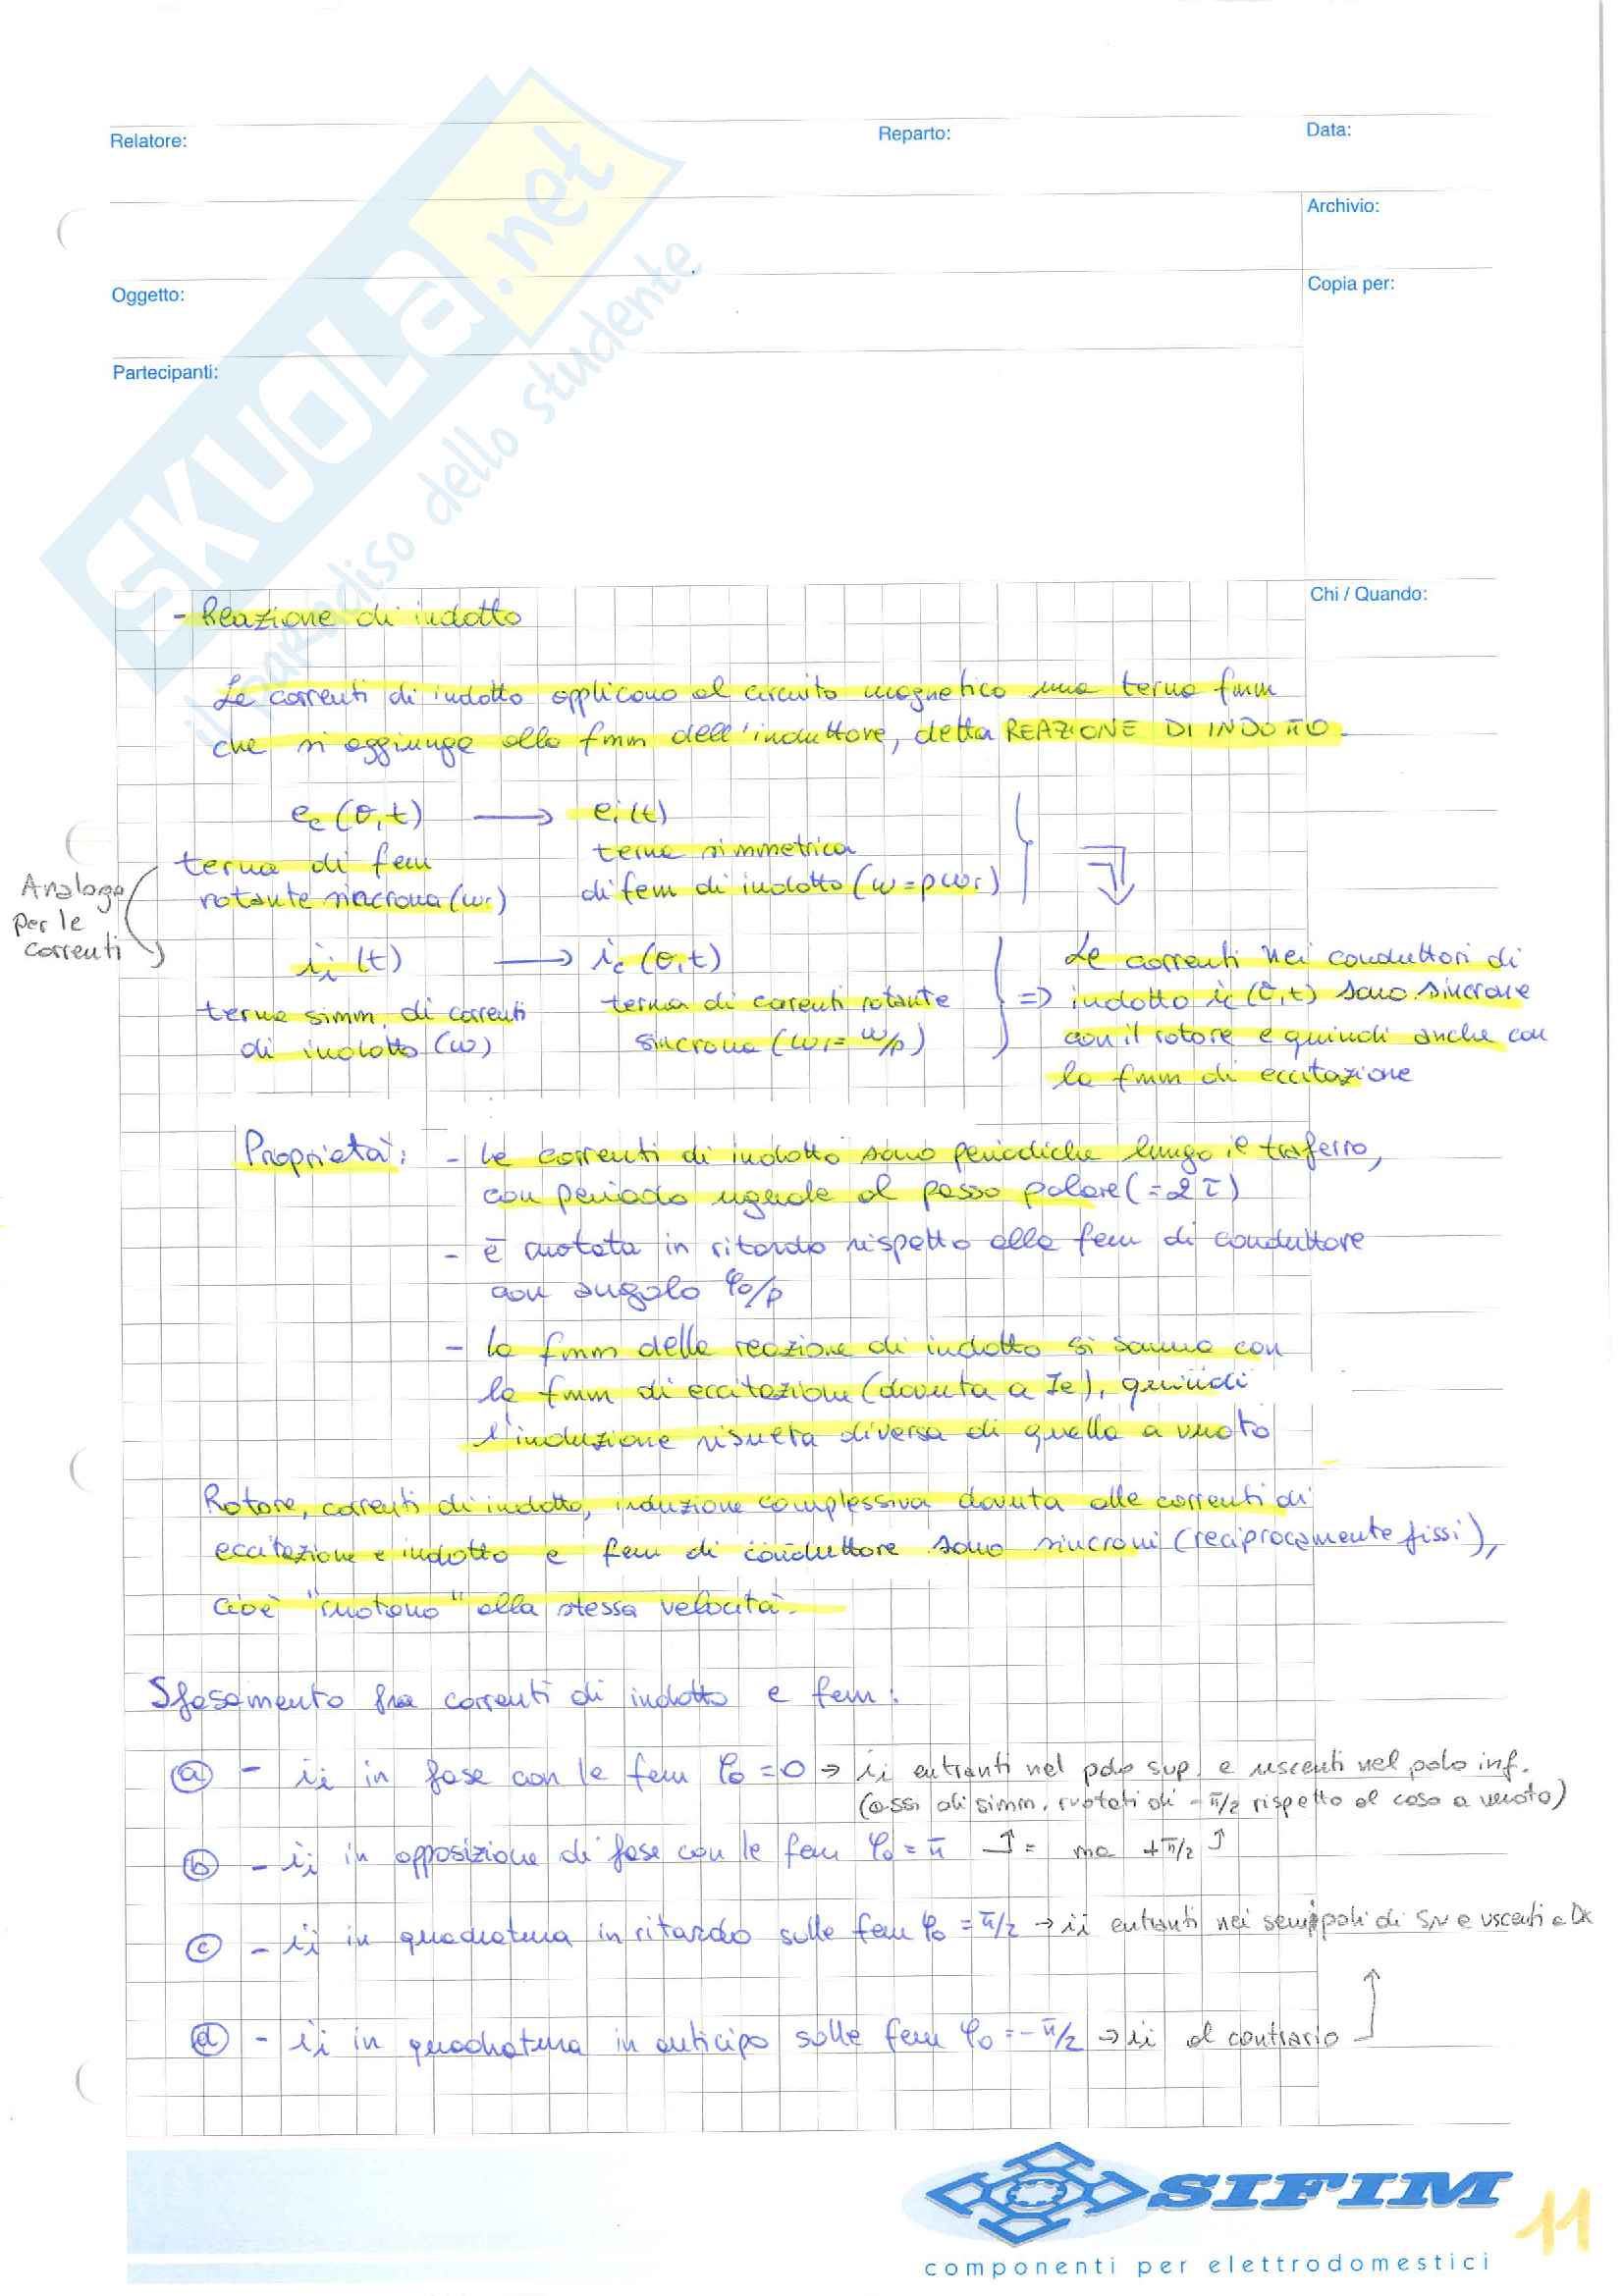 Relatore:
Reparto:
Data:
Archivio:
Oggetto:
Copia per:
Partecipanti:
SKUOLA.net
il paradiso dello studente
Chi / Quando:
- Reazione di indotto
Le correnti di indotto applicano al circuito magnetico una terna fmm
che si aggiunge alla fmm dell'induttore, detta REAZIONE DI INDOTTO.
ec (θ,t) → ei (t)
terna di fem
rotante sincrona (ωr)
terna simmetrica
di fem di indotto (ω=pωr)
Analogo
per le
correnti
ii (t) → ic (θ,t)
terna simm. di correnti
di indotto (ω)
terna di correnti rotante
sincrona (ωr= ω/p)
Le correnti nei conduttori di
=> indotto ic (θ,t) sono sincrone
con il rotore e quindi anche con
la fmm di eccitazione
Proprietà: - Le correnti di indotto sono periodiche lungo il traferro,
con periodo uguale al passo polare (=2τ)
- è ruotata in ritardo rispetto alla fem di conduttore
con angolo φ0/p
- la fmm della reazione di indotto si somma con
la fmm di eccitazione (dovuta a Ie), quindi
l'induzione risulta diversa di quella a vuoto
Rotore, correnti di indotto, induzione complessiva dovuta alle correnti di
eccitazione e indotto e fem di conduttore sono sincroni (reciprocamente fissi),
cioè "ruotano" alla stessa velocità.
Sfasamento fra correnti di indotto e fem:
a - ii in fase con le fem φ0 = 0 → ii entranti nel polo sup. e uscenti nel polo inf.
(assi di simm. ruotati di -π/2 rispetto al caso a vuoto)
b - ii in opposizione di fase con le fem φ0 = π = ma +π/2
c - ii in quadratura in ritardo sulle fem φ0 = π/2 → ii entranti nei semipoli di SN e uscenti a DX
d - ii in quadratura in anticipo sulle fem φ0 = -π/2 → ii al contrario
SIFIM
componenti per elettrodomestici
11